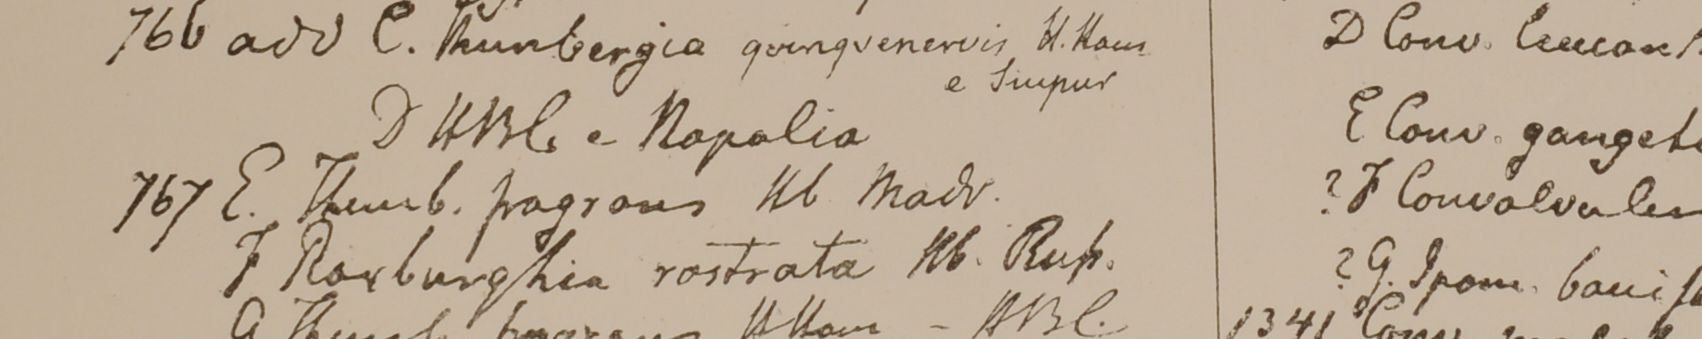 766 add C. Thunbergia quinquenervis H. Ham
e Sucpur
D HBC e Napalia
767 E. Thunb. fragrans Hb Madr.
F Roxburghia rostrata Hb. Rup.
G Thunb. fragrans HHam - HBC.
D Conv.
E Conv.ganget
? F Convolvulus
? G. Ipom. bonifl
1341 Conv.